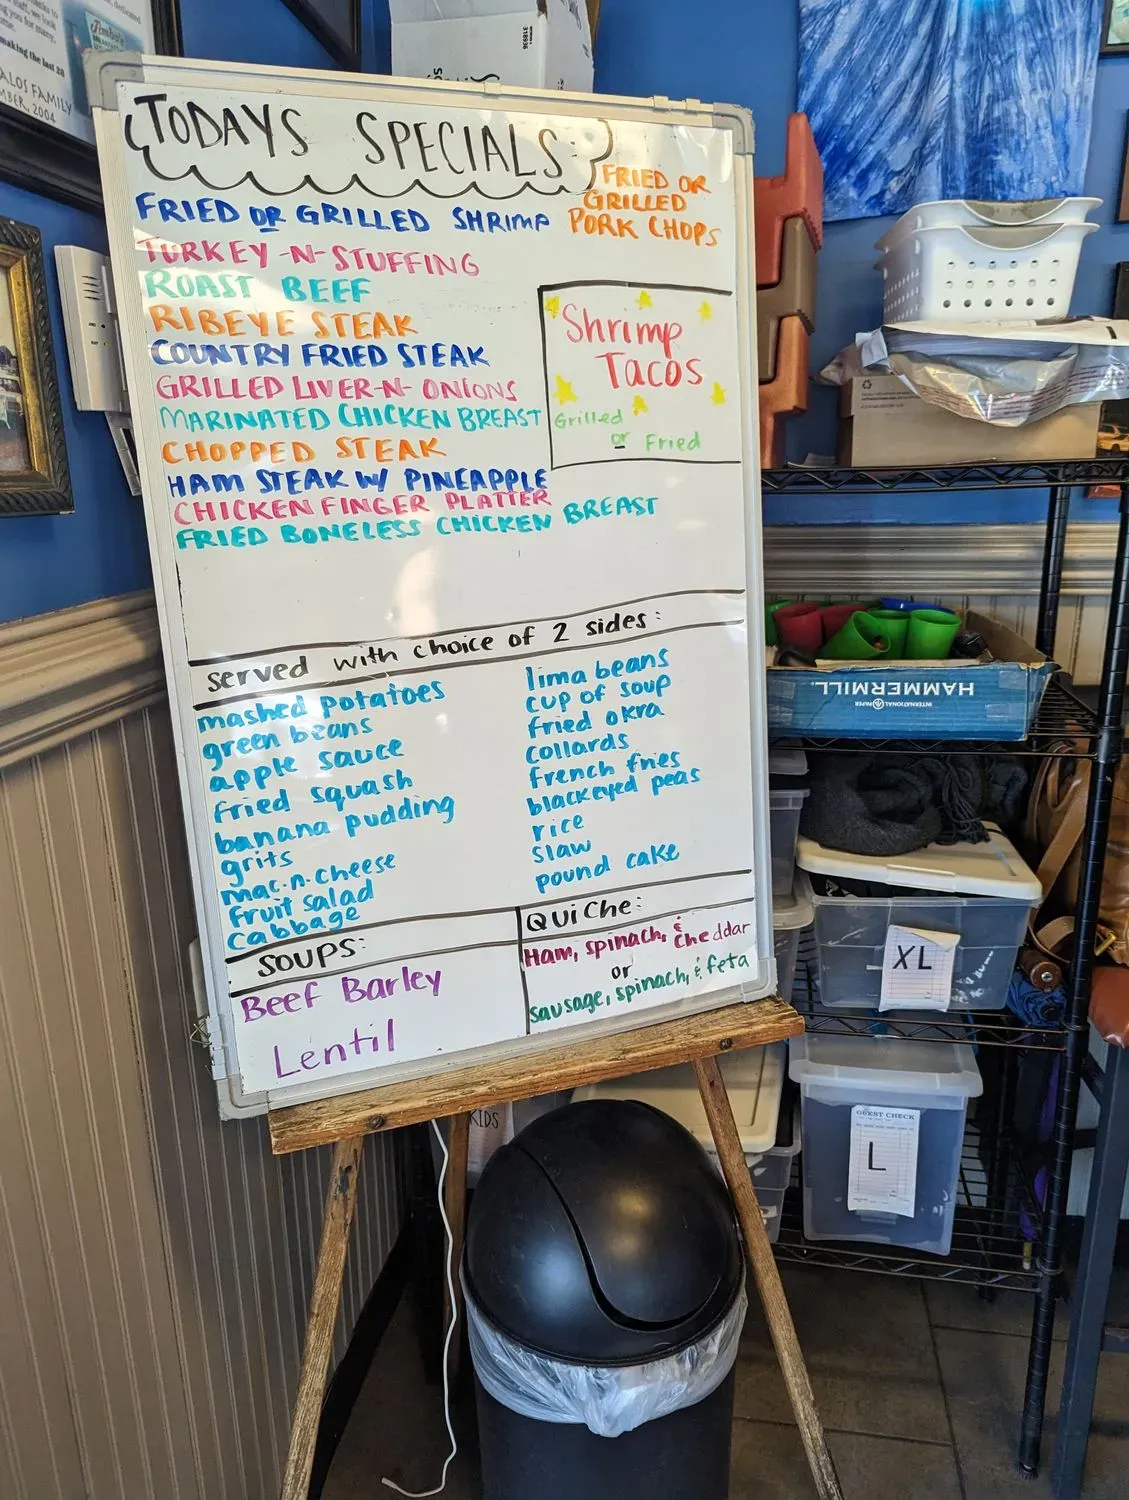 TODAYS SPECIALS:
FRIED OR GRILLED SHRIMP
TURKEY-N-STUFFING
ROAST BEEF
RIBEYE STEAK
COUNTRY FRIED STEAK
GRILLED LIVER-N-ONIONS
MARINATED CHICKEN BREAST
CHOPPED STEAK
HAM STEAK W/ PINEAPPLE
CHICKEN FINGER PLATTER
FRIED BONELESS CHICKEN BREAST
FRIED OR
GRILLED
PORK CHOPS
Shrimp
Tacos
Grilled
or Fried
served with choice of 2 sides:
mashed potatoes
green beans
apple sauce
fried squash
banana pudding
grits
mac.n.cheese
fruit salad
Cabbage
lima beans
cup of soup
fried okra
collards
french fries
blackeyed peas
rice
slaw
pound cake
SOUPS:
Beef Barley
Lentil
QUiChe:
Ham, spinach, & cheddar
or
sausage, spinach, & feta
making the last 20
ALOS FAMILY
MBER, 2004
318936
HAMMERMILL
INTERNATIONAL PAPER
XL
GUEST CHECK
L
KIDS